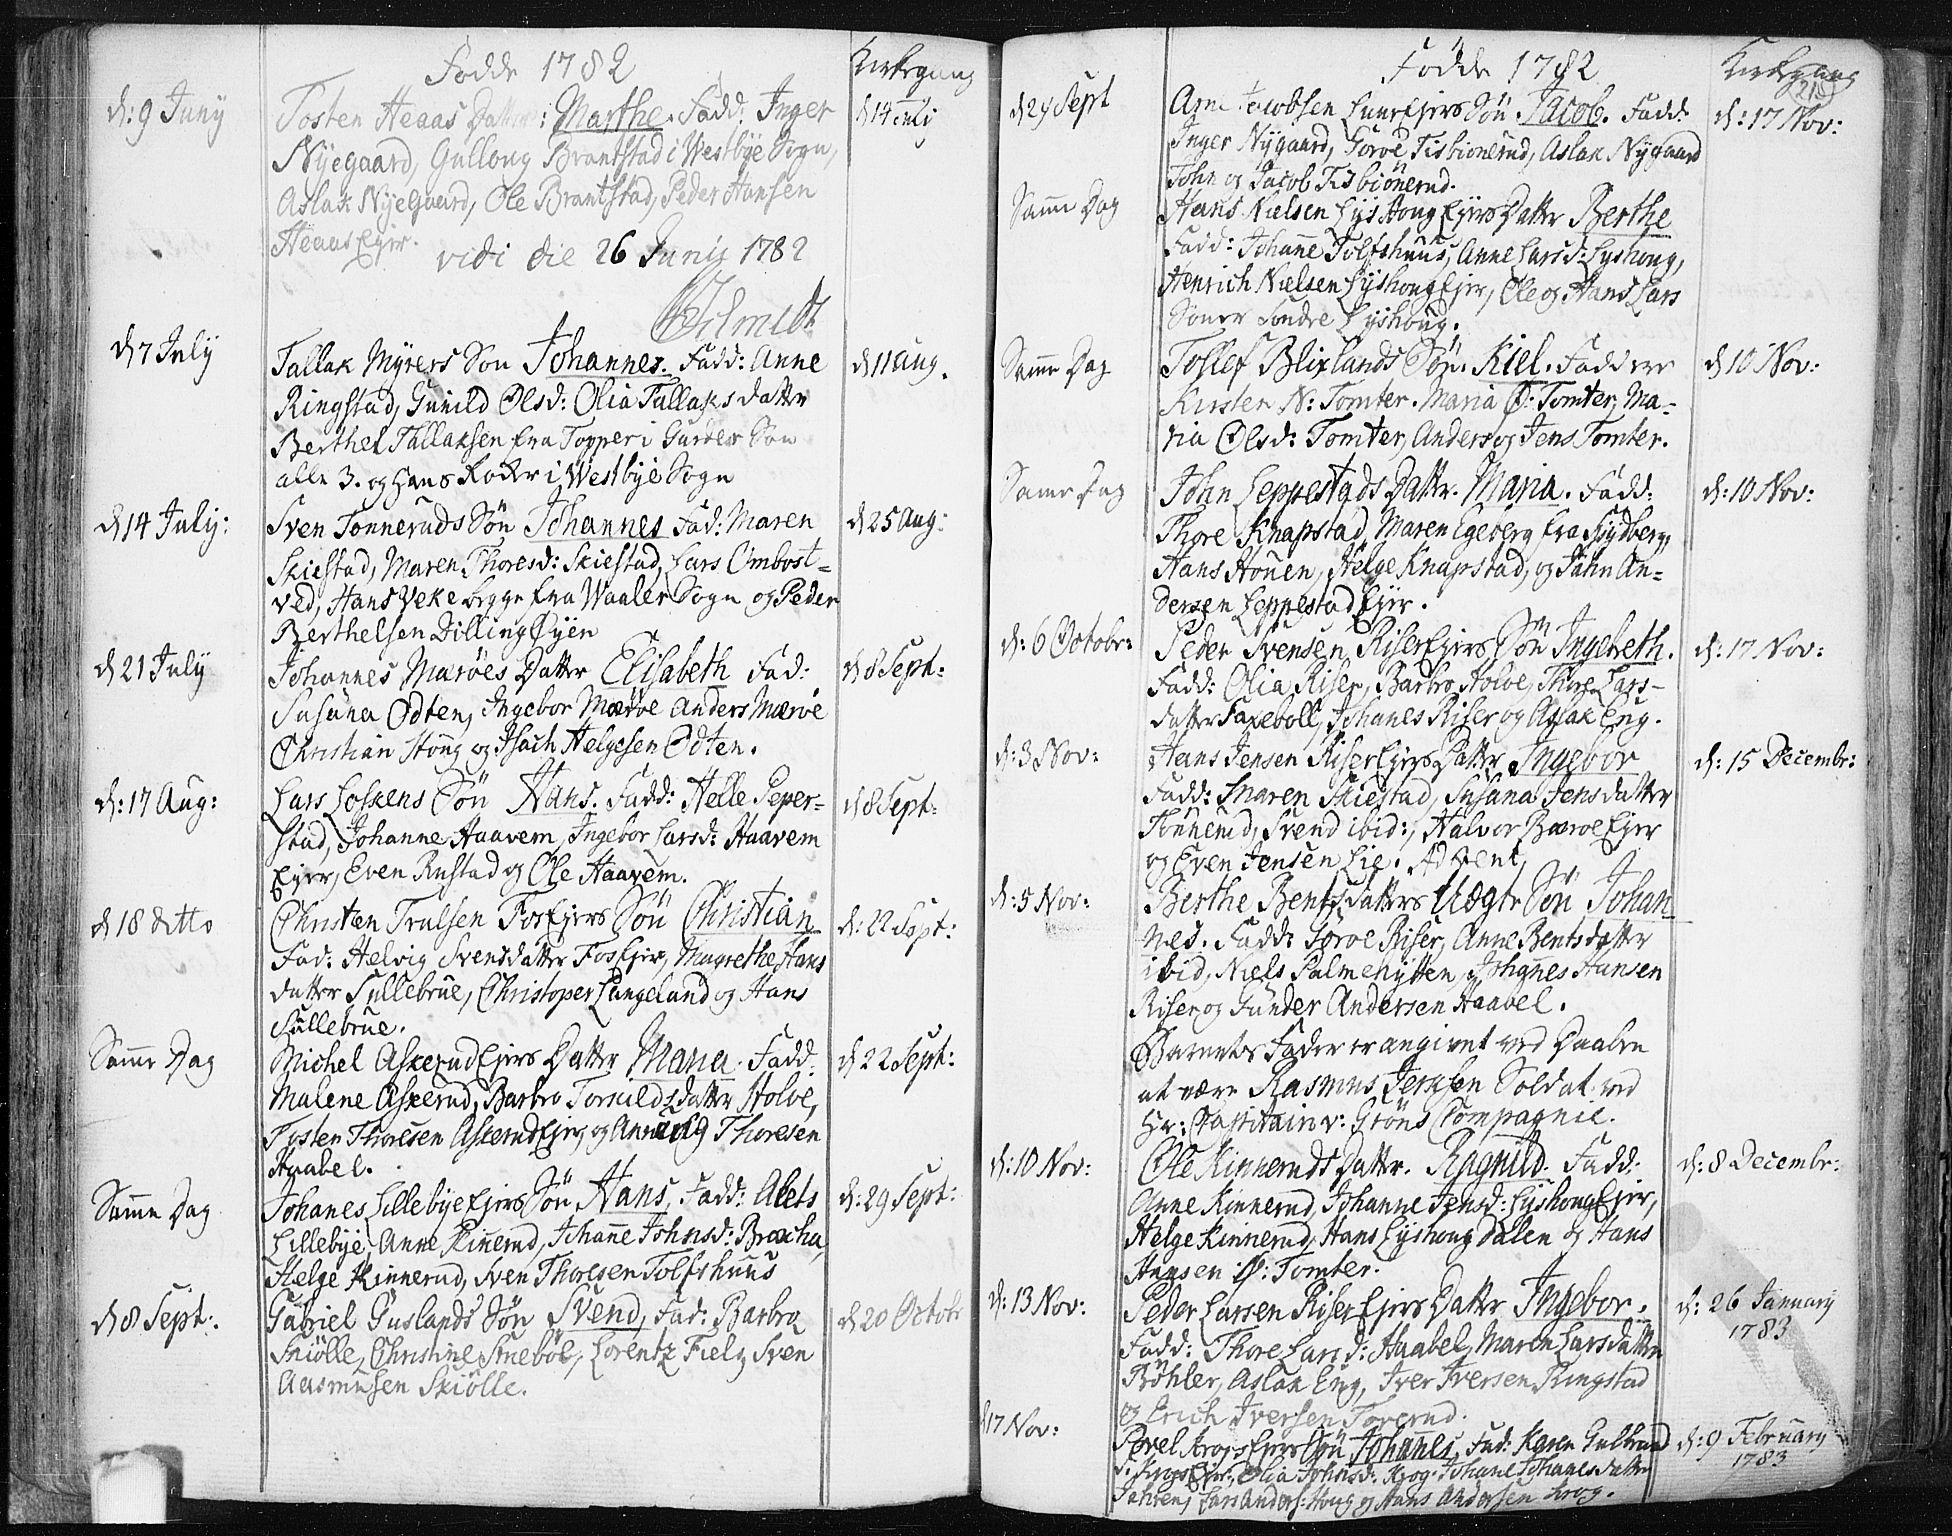 Fødde 1782
Kirkegang
d: 9 Juny
Tosten Heaas Datter: Marthe. Fadd. Inger
d 14 July
Nyegaard, Gulloug Brantstad i Westbye Sogn,
Aslak Nyegaard, Ole Brantstad, Peder Hansen
Heaas Ejer.
vidi die 26 Junii 1782
d 7 July
Tallak Myrers Søn Johannes. Fadd: Anne
d 11 Aug.
Ringstad, Gunild Olsd: Olia Tallaksdatter
Berthel Tallaksen fra Topper i
alle 3. og Hans i Westbye Sogn
d 14 July:
Sven Tonneruds Søn Johannes Fad: Maren
d 25 Aug:
Skiestad, Maren Thoresd: Skiestad, Lars Ombost-
ved, Hans Veke begge fra Waaler Sogn og Peder
Berthelsen Dilling Øyen
d 21 July
Johannes Mærøes Datter Elisabeth Fad:
d 8 Sept:
Susana Odten, Ingebor Mærøe Anders Mærøe
Christian Houg og Isach Helgesen Odten.
d: 17 Aug:
Lars Loskens Søn Hans. Fadd: Helle Peper-
d 8 Sept:
stad, Johanne Haavem, Ingebor Larsd: Haavem
Ejer, Even Rustad og Ole Haavem.
d 18 ditto
Christen Trulsen Fos Ejers Søn Christian
d: 22 Sept:
Fad: Helvig Svensdatter Fos Ejer, Magrethe Hans
datter Sullebrue, Christoper Langeland og Hans
Sullebrue.
Samme Dag
Michel Askerud Ejers Datter Maria. Fadd:
d 22 Sept:
Malene Askerud, Barbro Torsuildsdatter Holve,
Tosten Thoresen Askerud Ejer, og Thoresen
Haabel.
Samme Dag
Johanes Lillebye Ejers Søn Hans, Fadd: Alets
d: 29 Sept:
Lillebye, Anne Kinnerud, Johanne Johnsd: Bracha,
Helge Kinnerud, Sven Thoresen Tolfshuus
d 8 Sept:
Gabriel Guslands Søn Svend, Fad: Barbro
d 20 Octobr
Skiølle, Christine Snebøl, Lorentz Fielg Sven
Aasmusen Skiølle.
Fødde 1782
Kirkegang
215
d 29 Sept
Arne Jacobsen Huer Ejers Søn Jacob. Fadd:
d: 17 Nov:
Inger Nygaard, Torve Tisbiønerud, Aslak Nygaard
John og Jacob Tisbiønerud.
Samme Dag
Hans Nielsen Lyshoug Ejers Datter Berthe
Fadd: Johane Tolfshuus, Anne Larsd: Lyshoug,
Henrich Nielsen Lyshoug Ejer, Ole og Hans Lars
Sønner Søndre Lyshoug.
Samme Dag
Tollef Blixlands Søn. Kiel. Faddere
d 10 Nov:
Kirsten N: Tomter. Maria Ø: Tomter, Ma-
ria Olsd: Tomter, Anders og Jens Tomter.
Samme Dag
John Leppestads Datter. Maria. Fadd:
d: 10 Nov:
Thore Knapstad, Maren Egeberg fra Spydberg,
Hans Houen, Helge Knapstad, og Jahn An-
dersen Leppestad Ejer.
d: 6 Octobr:
Peder Svensen Riser Ejers Søn Ingebreth.
d: 17 Nov:
Fadd: Olia Riser, Barbro Holve, Thore Lars-
datter Saxeboll, Johanes Riser og Aslak Eng.
d: 3 Nov:
Hans Jensen Riser Ejers Datter Ingebor
d: 15 Decembr:
Fadd: Maren Skiestad, Susana Jensdatter
Tonnerud, Svend ibid:, Halvor Bærøe Ejer
og Even Jensen Lie. Advent,
d: 5 Nov:
Berthe Bentsdatters Uægte Søn Johan
nes. Fadd: Torve Riser, Anne Bentsdatter
ibid, Niels Palmehytten, Johannes Hansen
Riser og Gunder Andersen Haabel.
Barnets Fader er angivet ved Daaben
at være Rasmus Jensen Soldat ved
Hr: Captitain v: Grøns Compagnie.
d: 10 Nov:
Ole Kinneruds Datter. Ragnild. Fadd:
d: 8 Decembr:
Anne Kinnerud, Johanne Jensd: Lyshoug Ejer,
Helge Kinnerud, Hans Lyshoug Dalen og Hans
Hansen Ø: Tomter.
d: 13 Nov:
Peder Larsen Riser Ejers Datter Ingebor.
d: 26 January
1783
Fadd: Thore Larsd: Haabel, Maren Larsdatter
Bøhler, Aslak Eng, Iver Iversen Ringstad
og Erich Iversen Toverud.
d 17 Nov:
Povel Krogs Ejers Søn Johannes, Fad: Karen Gulbrand
d: 9 February
1783
d: Krogs Ejer, Olia Johnsd: Krog. Johane Johanesdatter
Jahren, Lars Anders: Houg og Hans Andersen Krog.